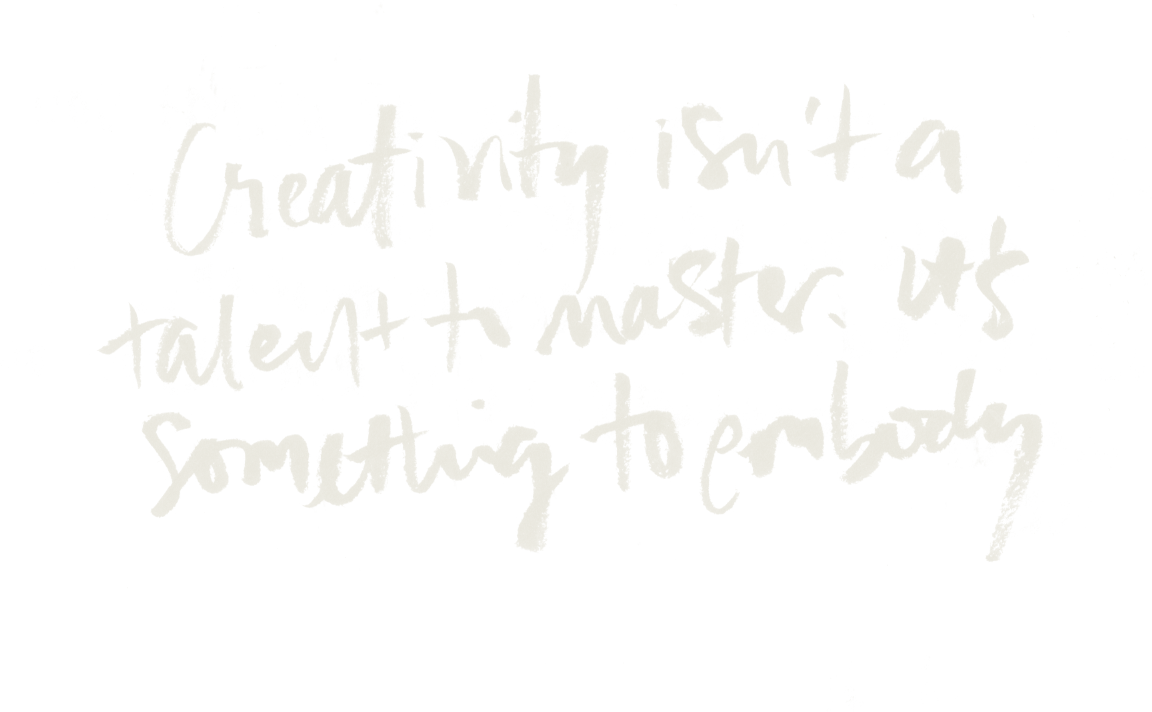 Creativity isn't a
talent to master. it's
something to embody